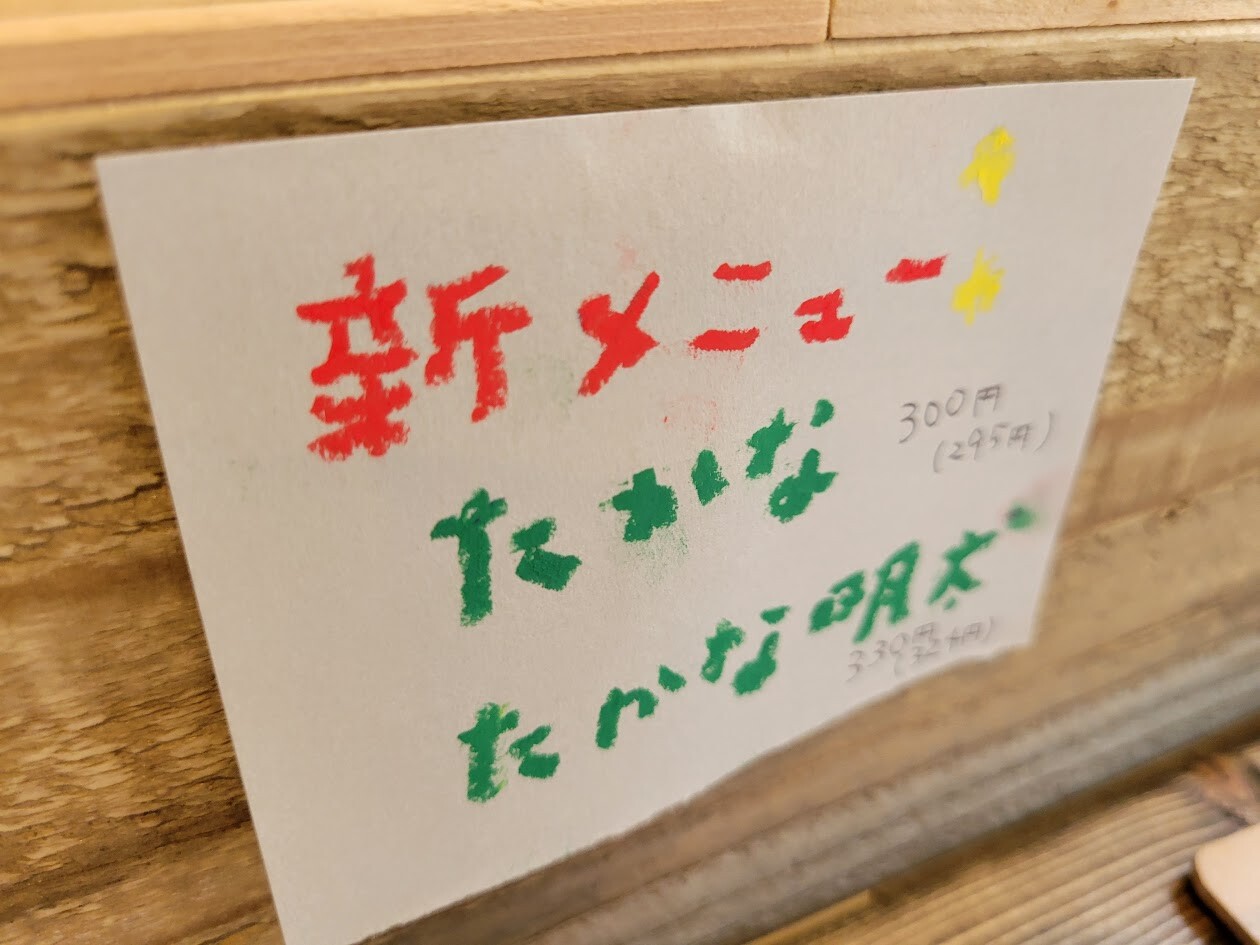 新メニュー
たかな
300円
(295円)
たかな明太
330円
(324円)